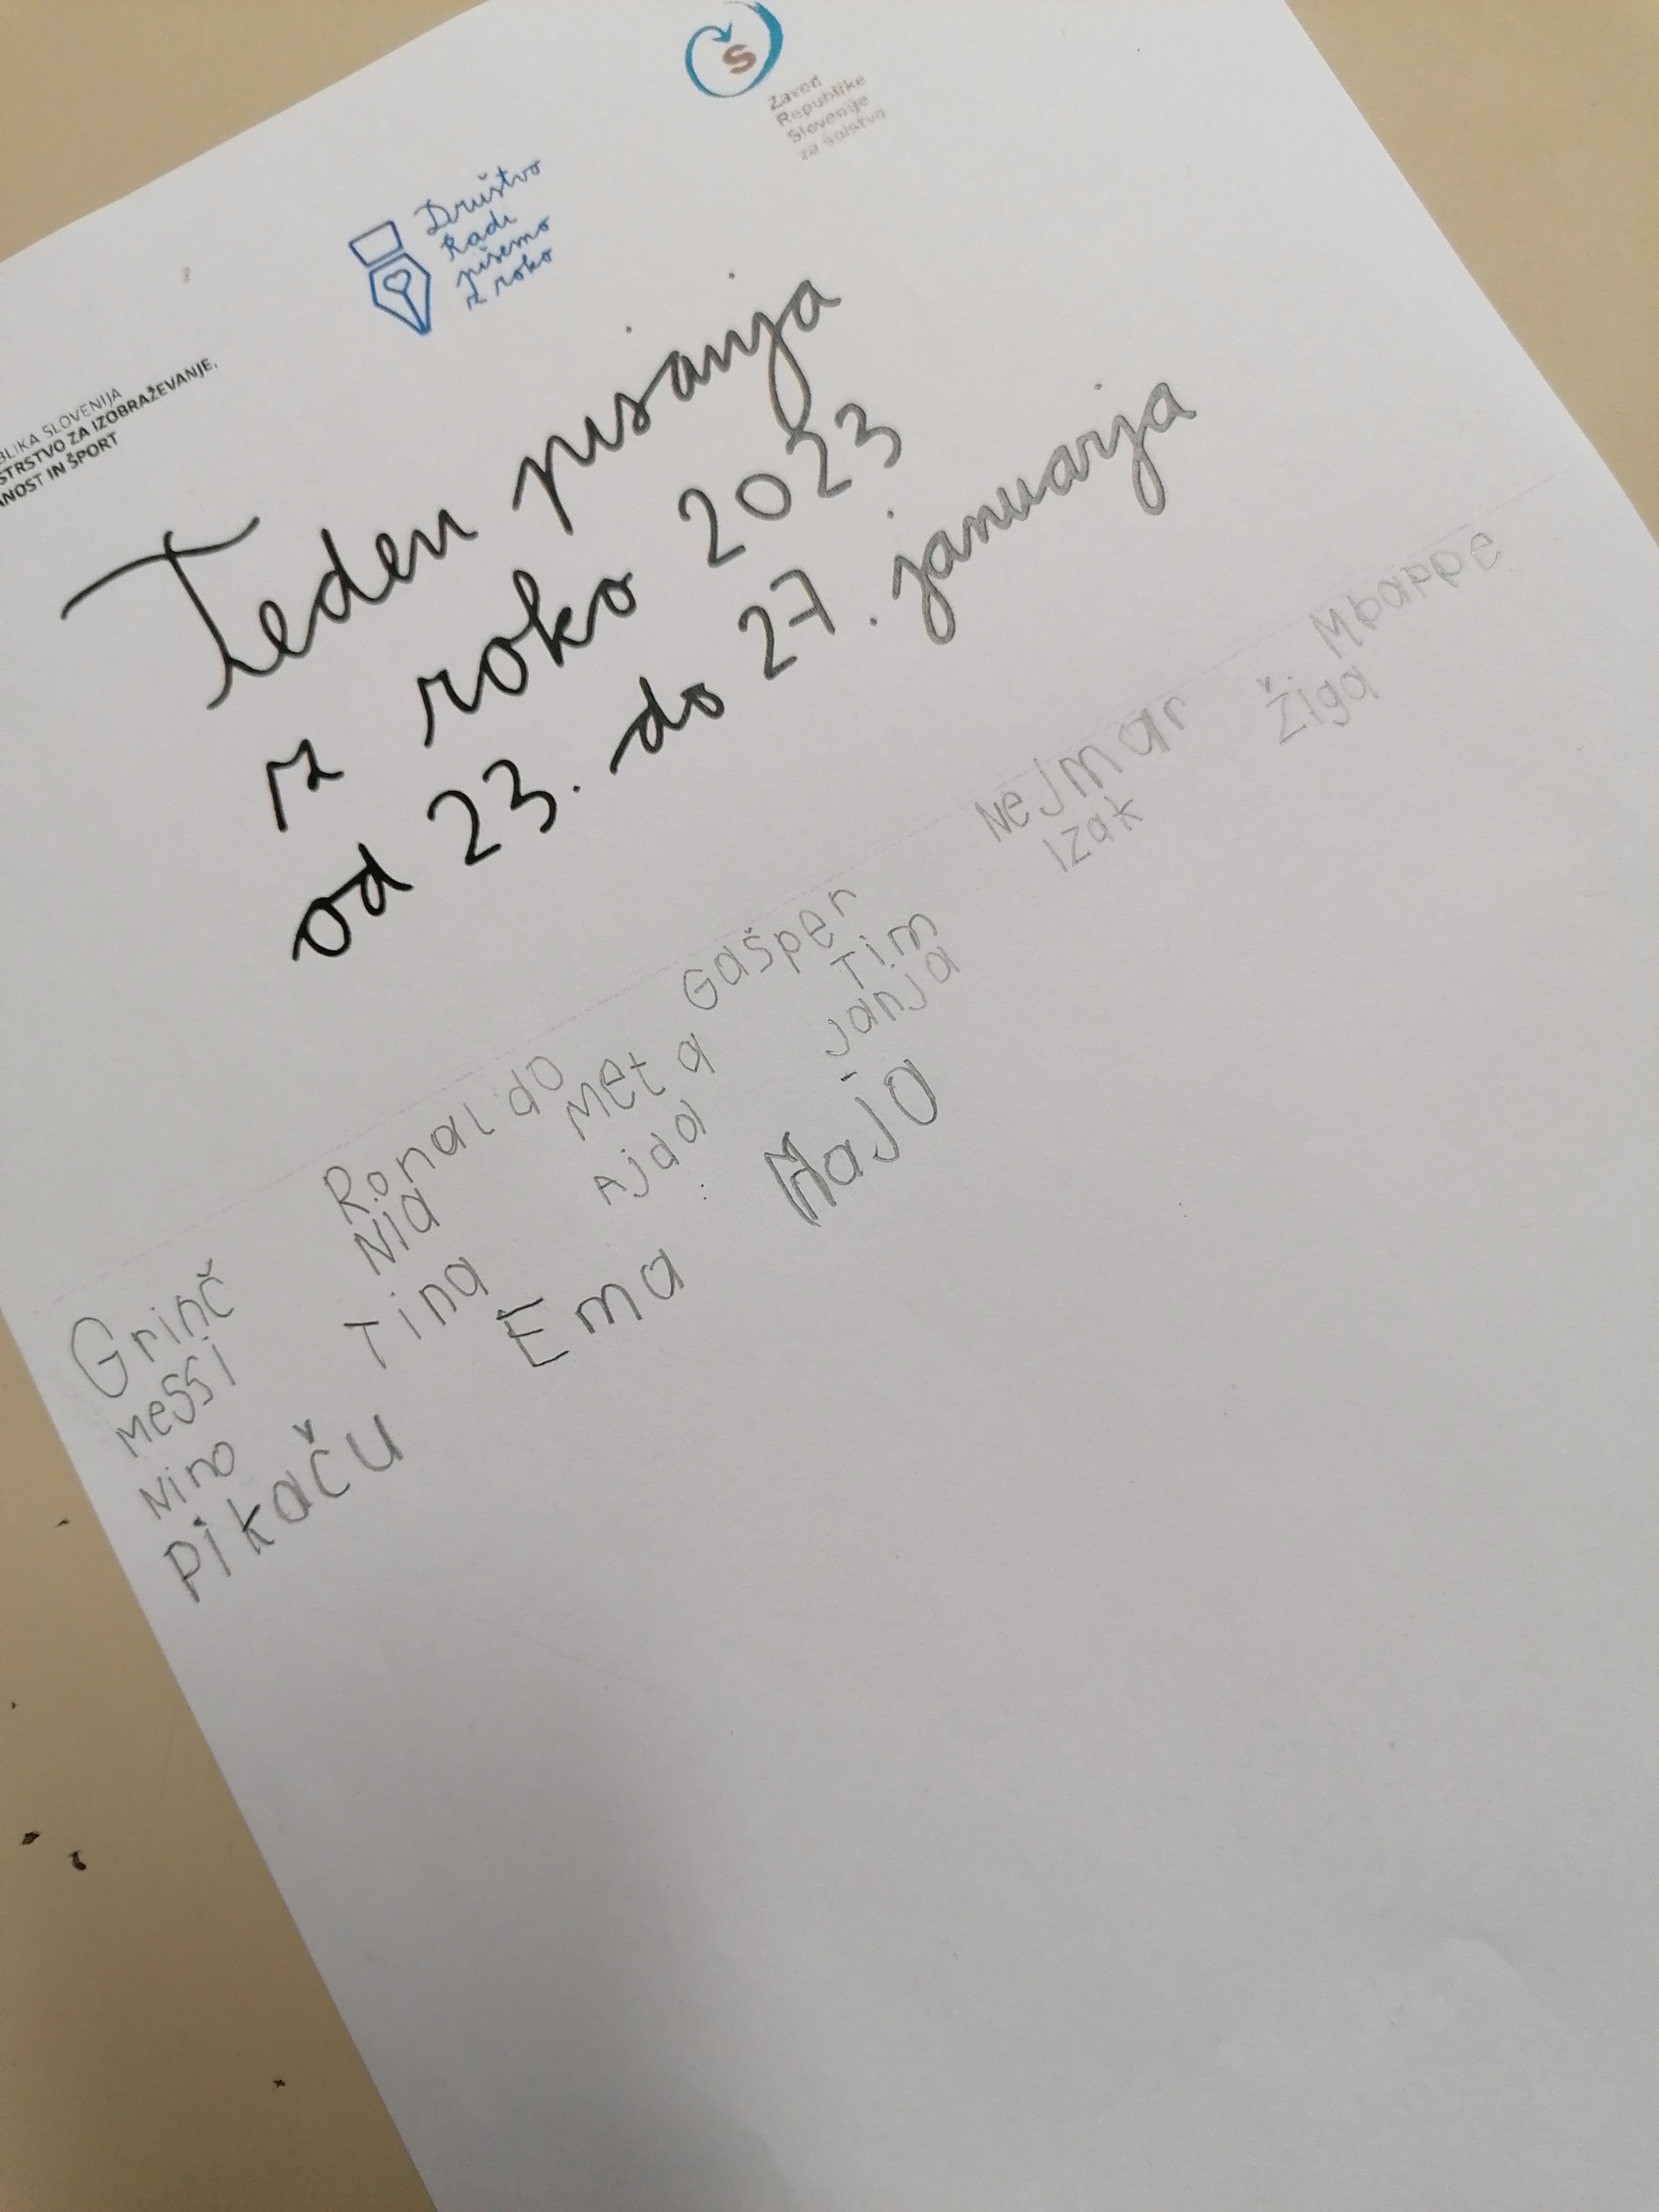 Zavod
Republike
Slovenije
za šolstvo
Društvo
Radi
pišemo
z roko
BLIKA SLOVENIJA
STRSTVO ZA IZOBRAŽEVANJE,
ANOST IN ŠPORT
Teden pisanja
z roko 2023
od 23. do 27. januarja
Grinč Ronaldo Gašper Nejmar Mbappe
Messi Nia Meta Tim Izak Žiga
Nino Tina Ajda Janja
Pikaču Ema Maja